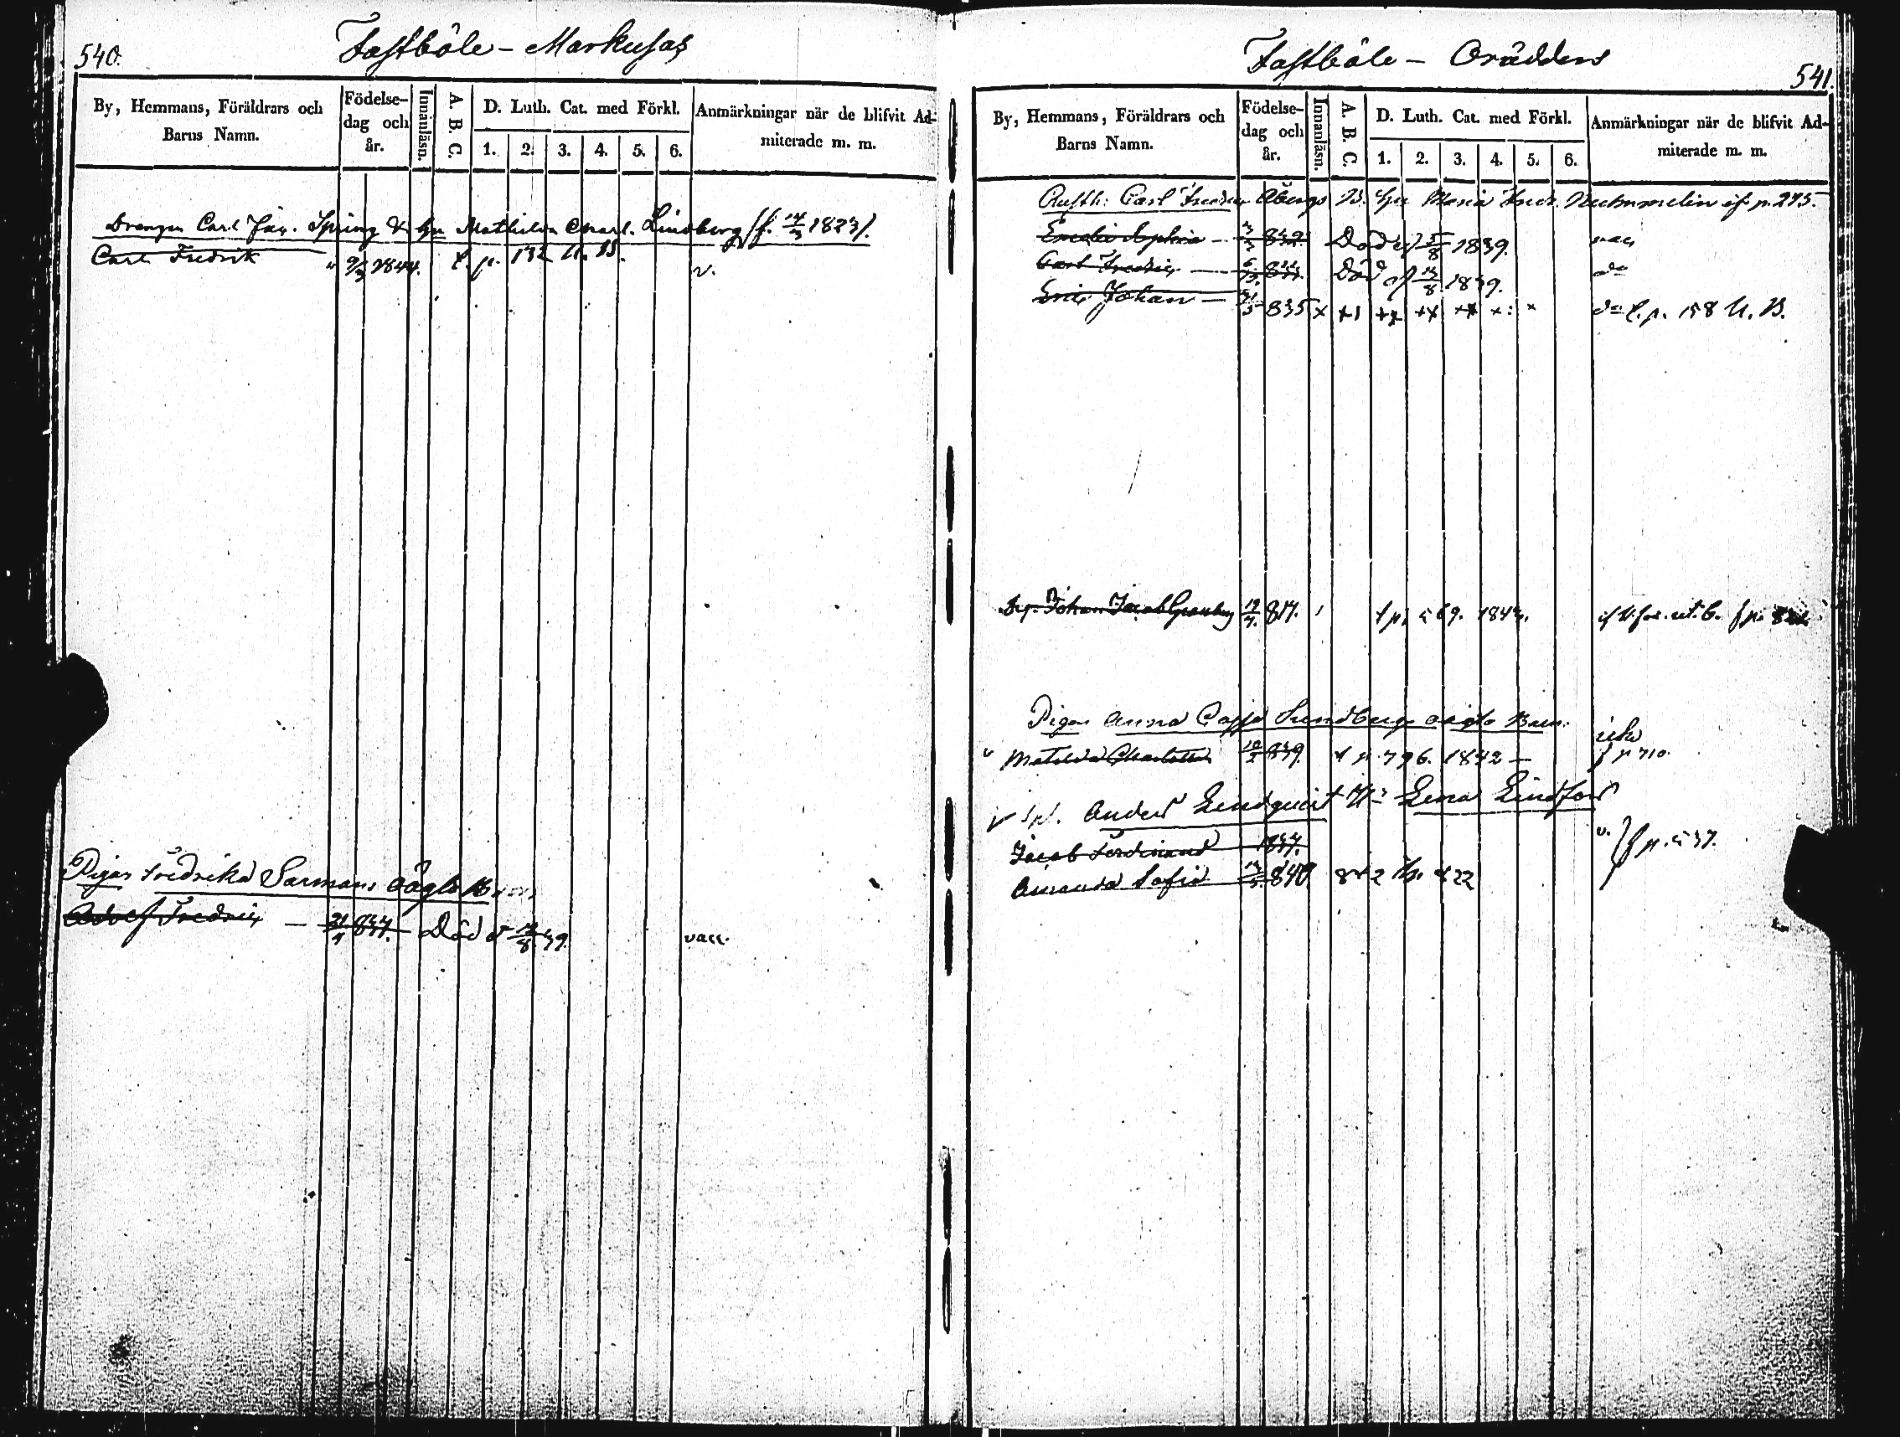 540.
Fastböle - Markusas
By, Hemmans, Föräldrars och
Barns Namn.
Födelse-
dag och
år.
Innanläsn.
A. B. C.
D. Luth. Cat. med Förkl.
1. 2. 3. 4. 5. 6.
Anmärkningar när de blifvit Ad-
miterade m. m.
Drengen Carl Spring & Hu Mathilda Charl. Lindberg /f. 14/3 1823/.
Carl Fredrik 9/3 1844. t. p. 132 U. B. v.
Pigan Fredrika Sarmans oägta Barn
Adolf Fredric — 21/4 837. Död d 12/8 39. vacc.
Fastböle - Orädders
541.
By, Hemmans, Föräldrars och
Barns Namn.
Födelse-
dag och
år.
Innanläsn.
A. B. C.
D. Luth. Cat. med Förkl.
1. 2. 3. 4. 5. 6.
Anmärkningar när de blifvit Ad-
miterade m. m.
Rusth: Carl Fredric Åbergs B. Hu Maria Fred. Nummelin if p. 275.
Sophia - Död 1839. vacc
Carl Fredric — Död 1839. do
Eric Johan — 835 x do t. p. 158 U. B.
Johan Jacob Granberg 19/7. 817. 1843.
Pigan Anna Cajsa Sundbergs oägta Barn.
Matilda Charlotta 839. t p 796. 1842 — f p 710.
Anders Lindquist Hu Lena Lindfors
Jacob Ferdinand 1837. v. f p. 537.
Amanda Sofia 840 842 422